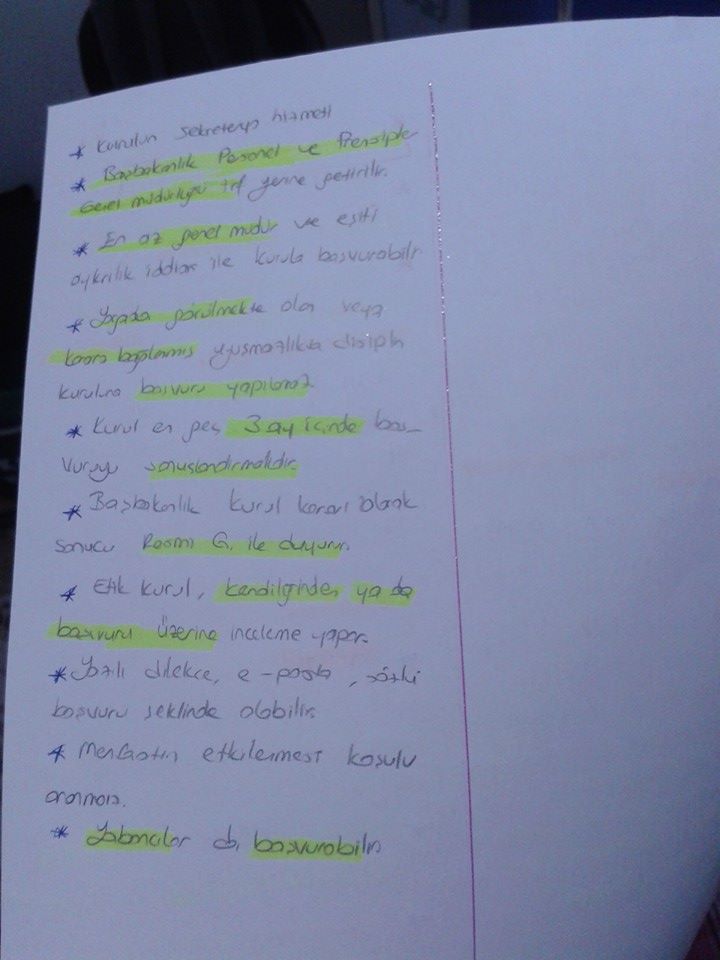 * Kurulun sekreterya hizmeti
* Başbakanlık Personel ve Prensipler
Genel müdürlüğü trf yerine getirilir.
* En az genel müdür ve eşiti
aykrılık iddiası ile kurula başvurabilir
* Yargıda görülmekte olan veya
karara bağlanmış uyuşmazlıkta disiplin
kuruluna başvuru yapılamaz
* Kurul en geç 3 ay içinde baş-
vuruyu sonuçlandırmalıdır.
* Başbakanlık kurul kararı olarak
sonucu Resmi G. ile duyurur.
* Etik kurul, kendiliğinden ya da
başvuru üzerine inceleme yapar.
* Yazılı dilekçe, e-posta, sözlü
başvuru şeklinde olabilir.
* Menfaatin etkilenmesi koşulu
aranmaz.
* Yabancılar da başvurabilir